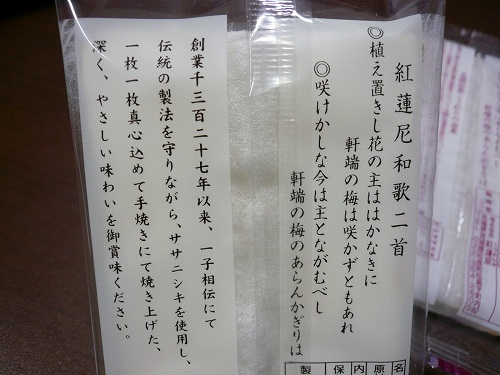 紅蓮尼和歌二首
◎植え置きし花の主ははかなきに
軒端の梅は咲かずともあれ
◎咲けかしな今は主とながむべし
軒端の梅のあらんかぎりは
創業千三百二十七年以来、一子相伝にて
伝統の製法を守りながら、ササニシキを使用し、
一枚一枚真心込めて手焼きにて焼き上げた、
深く、やさしい味わいを御賞味ください。
名
原
内
保
製